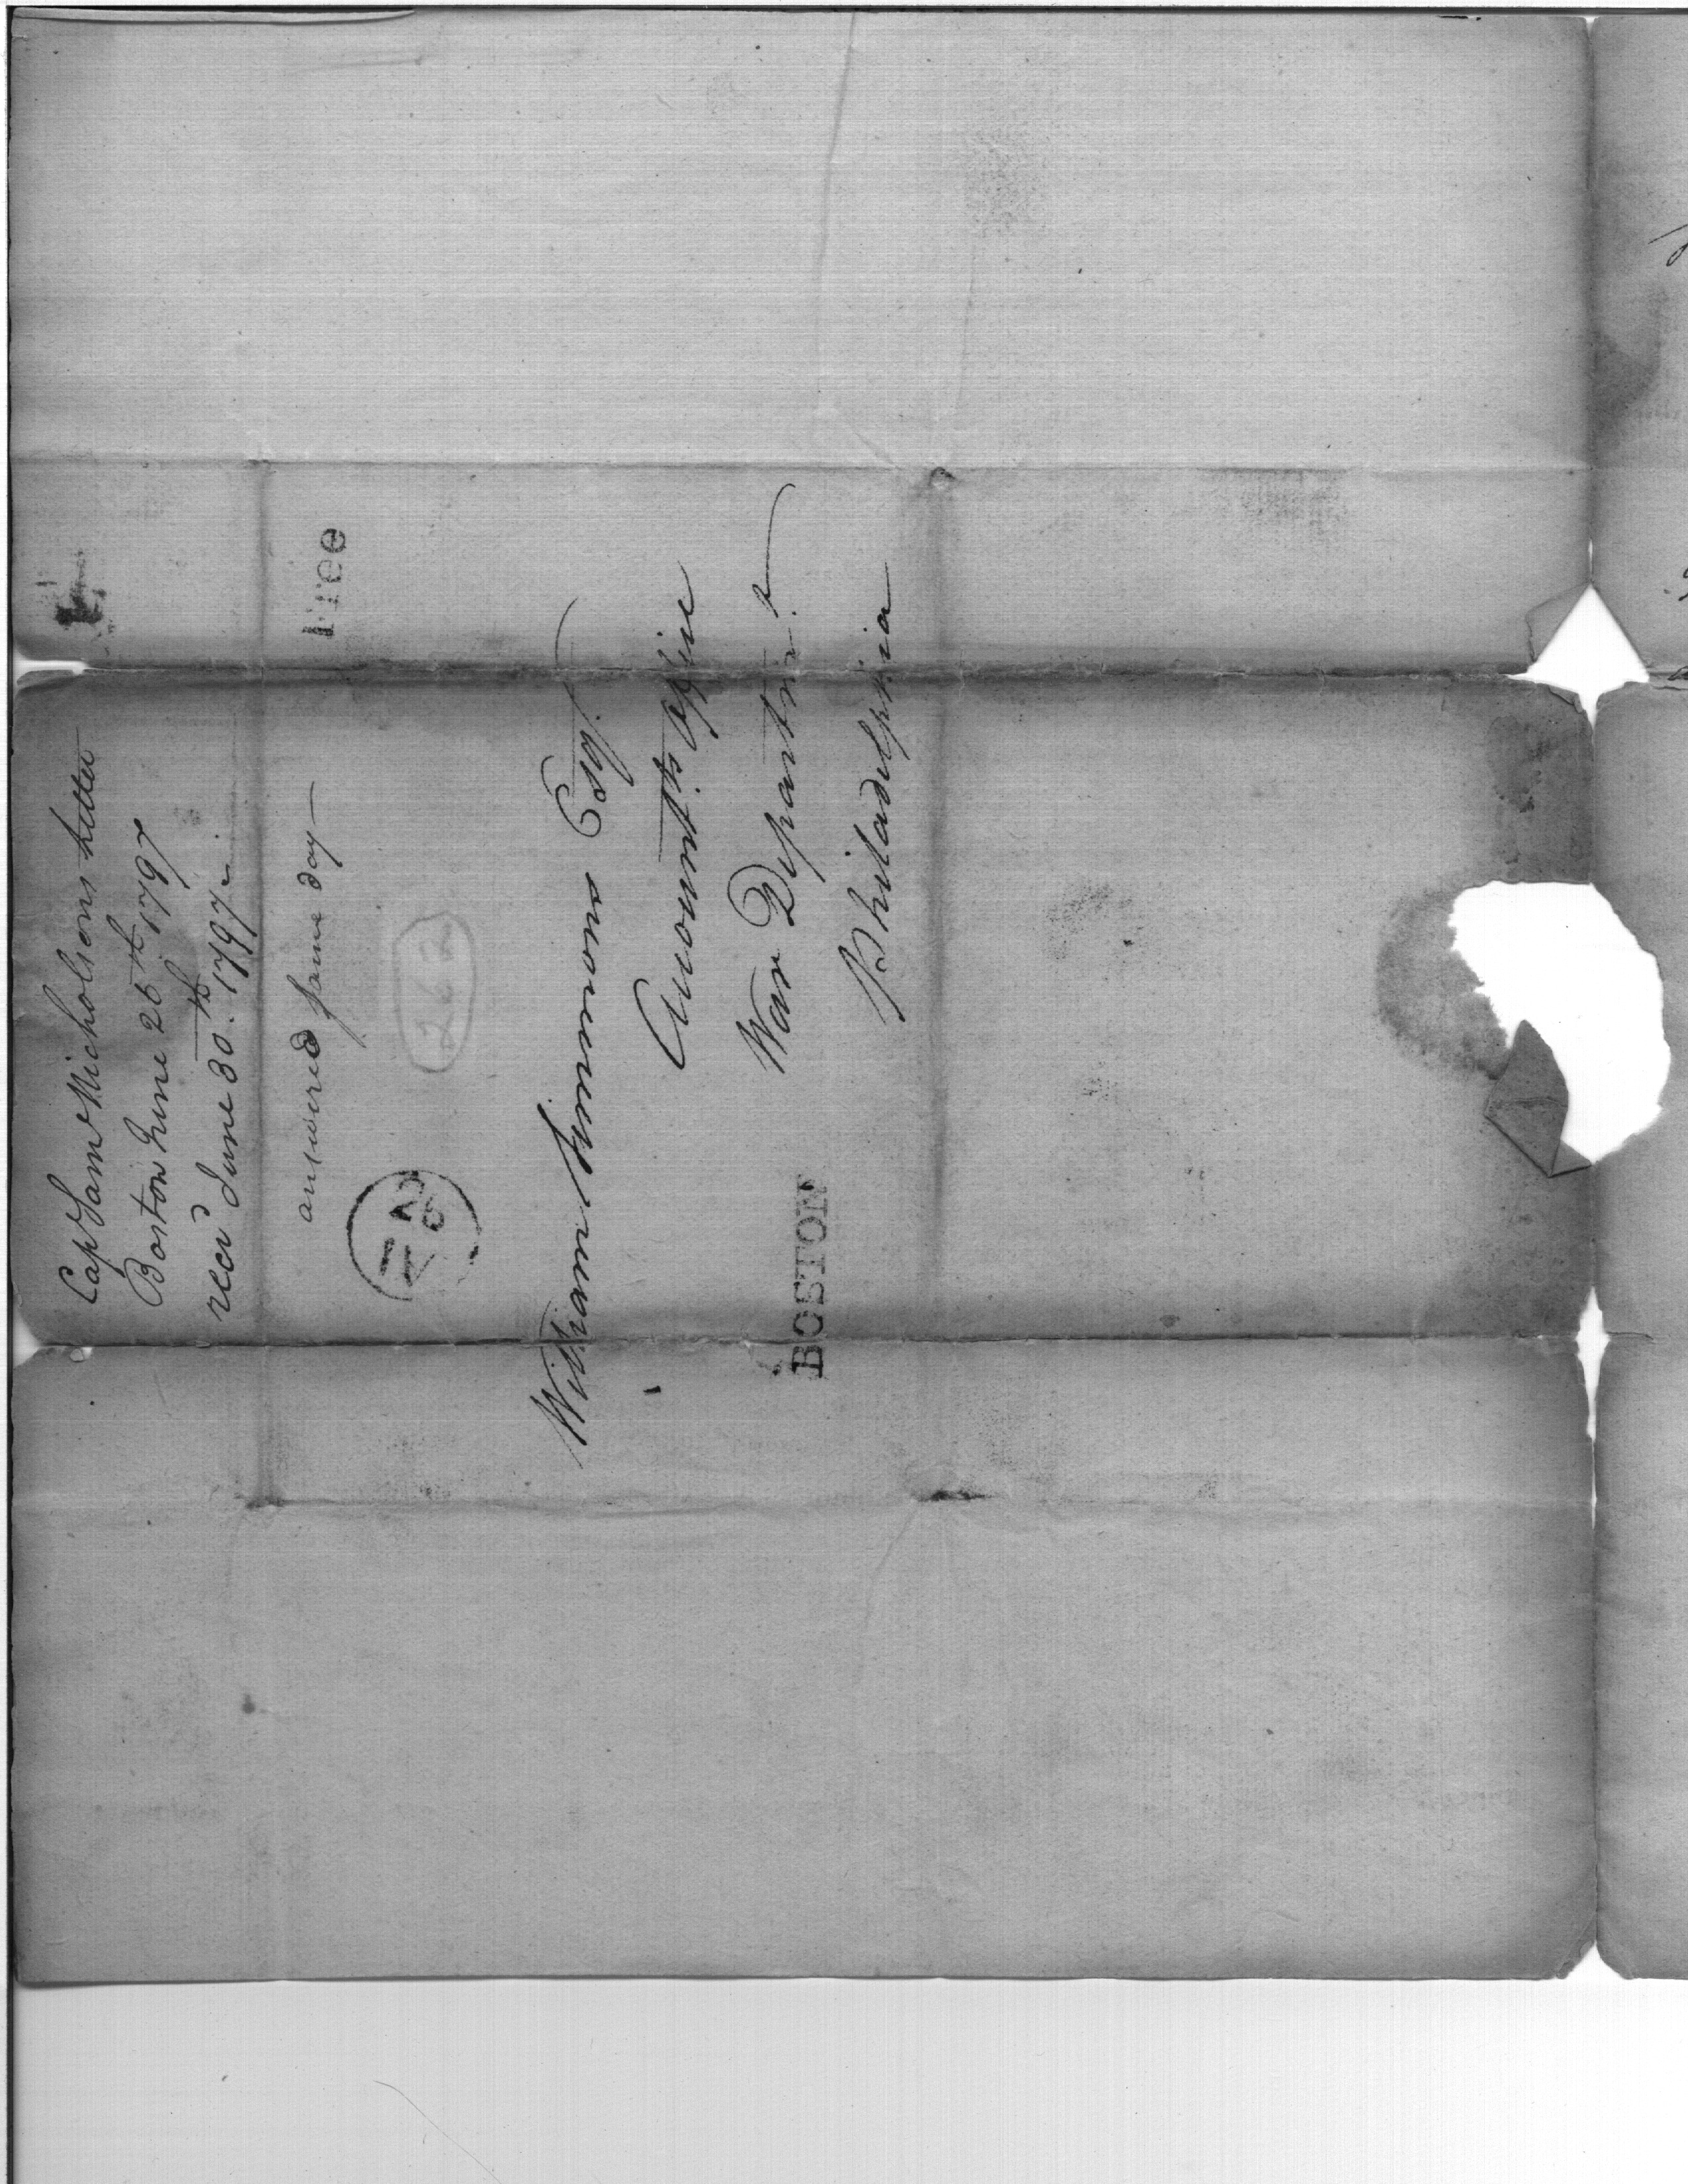 Cap Sam Nicholsons Letter
Boston June 26th 1797
recd June 30.th 1797.
answered same day
Free
262
William Simmons Esqr.
Accountts. Office
War Departm.t
Philadelphia
BOSTON